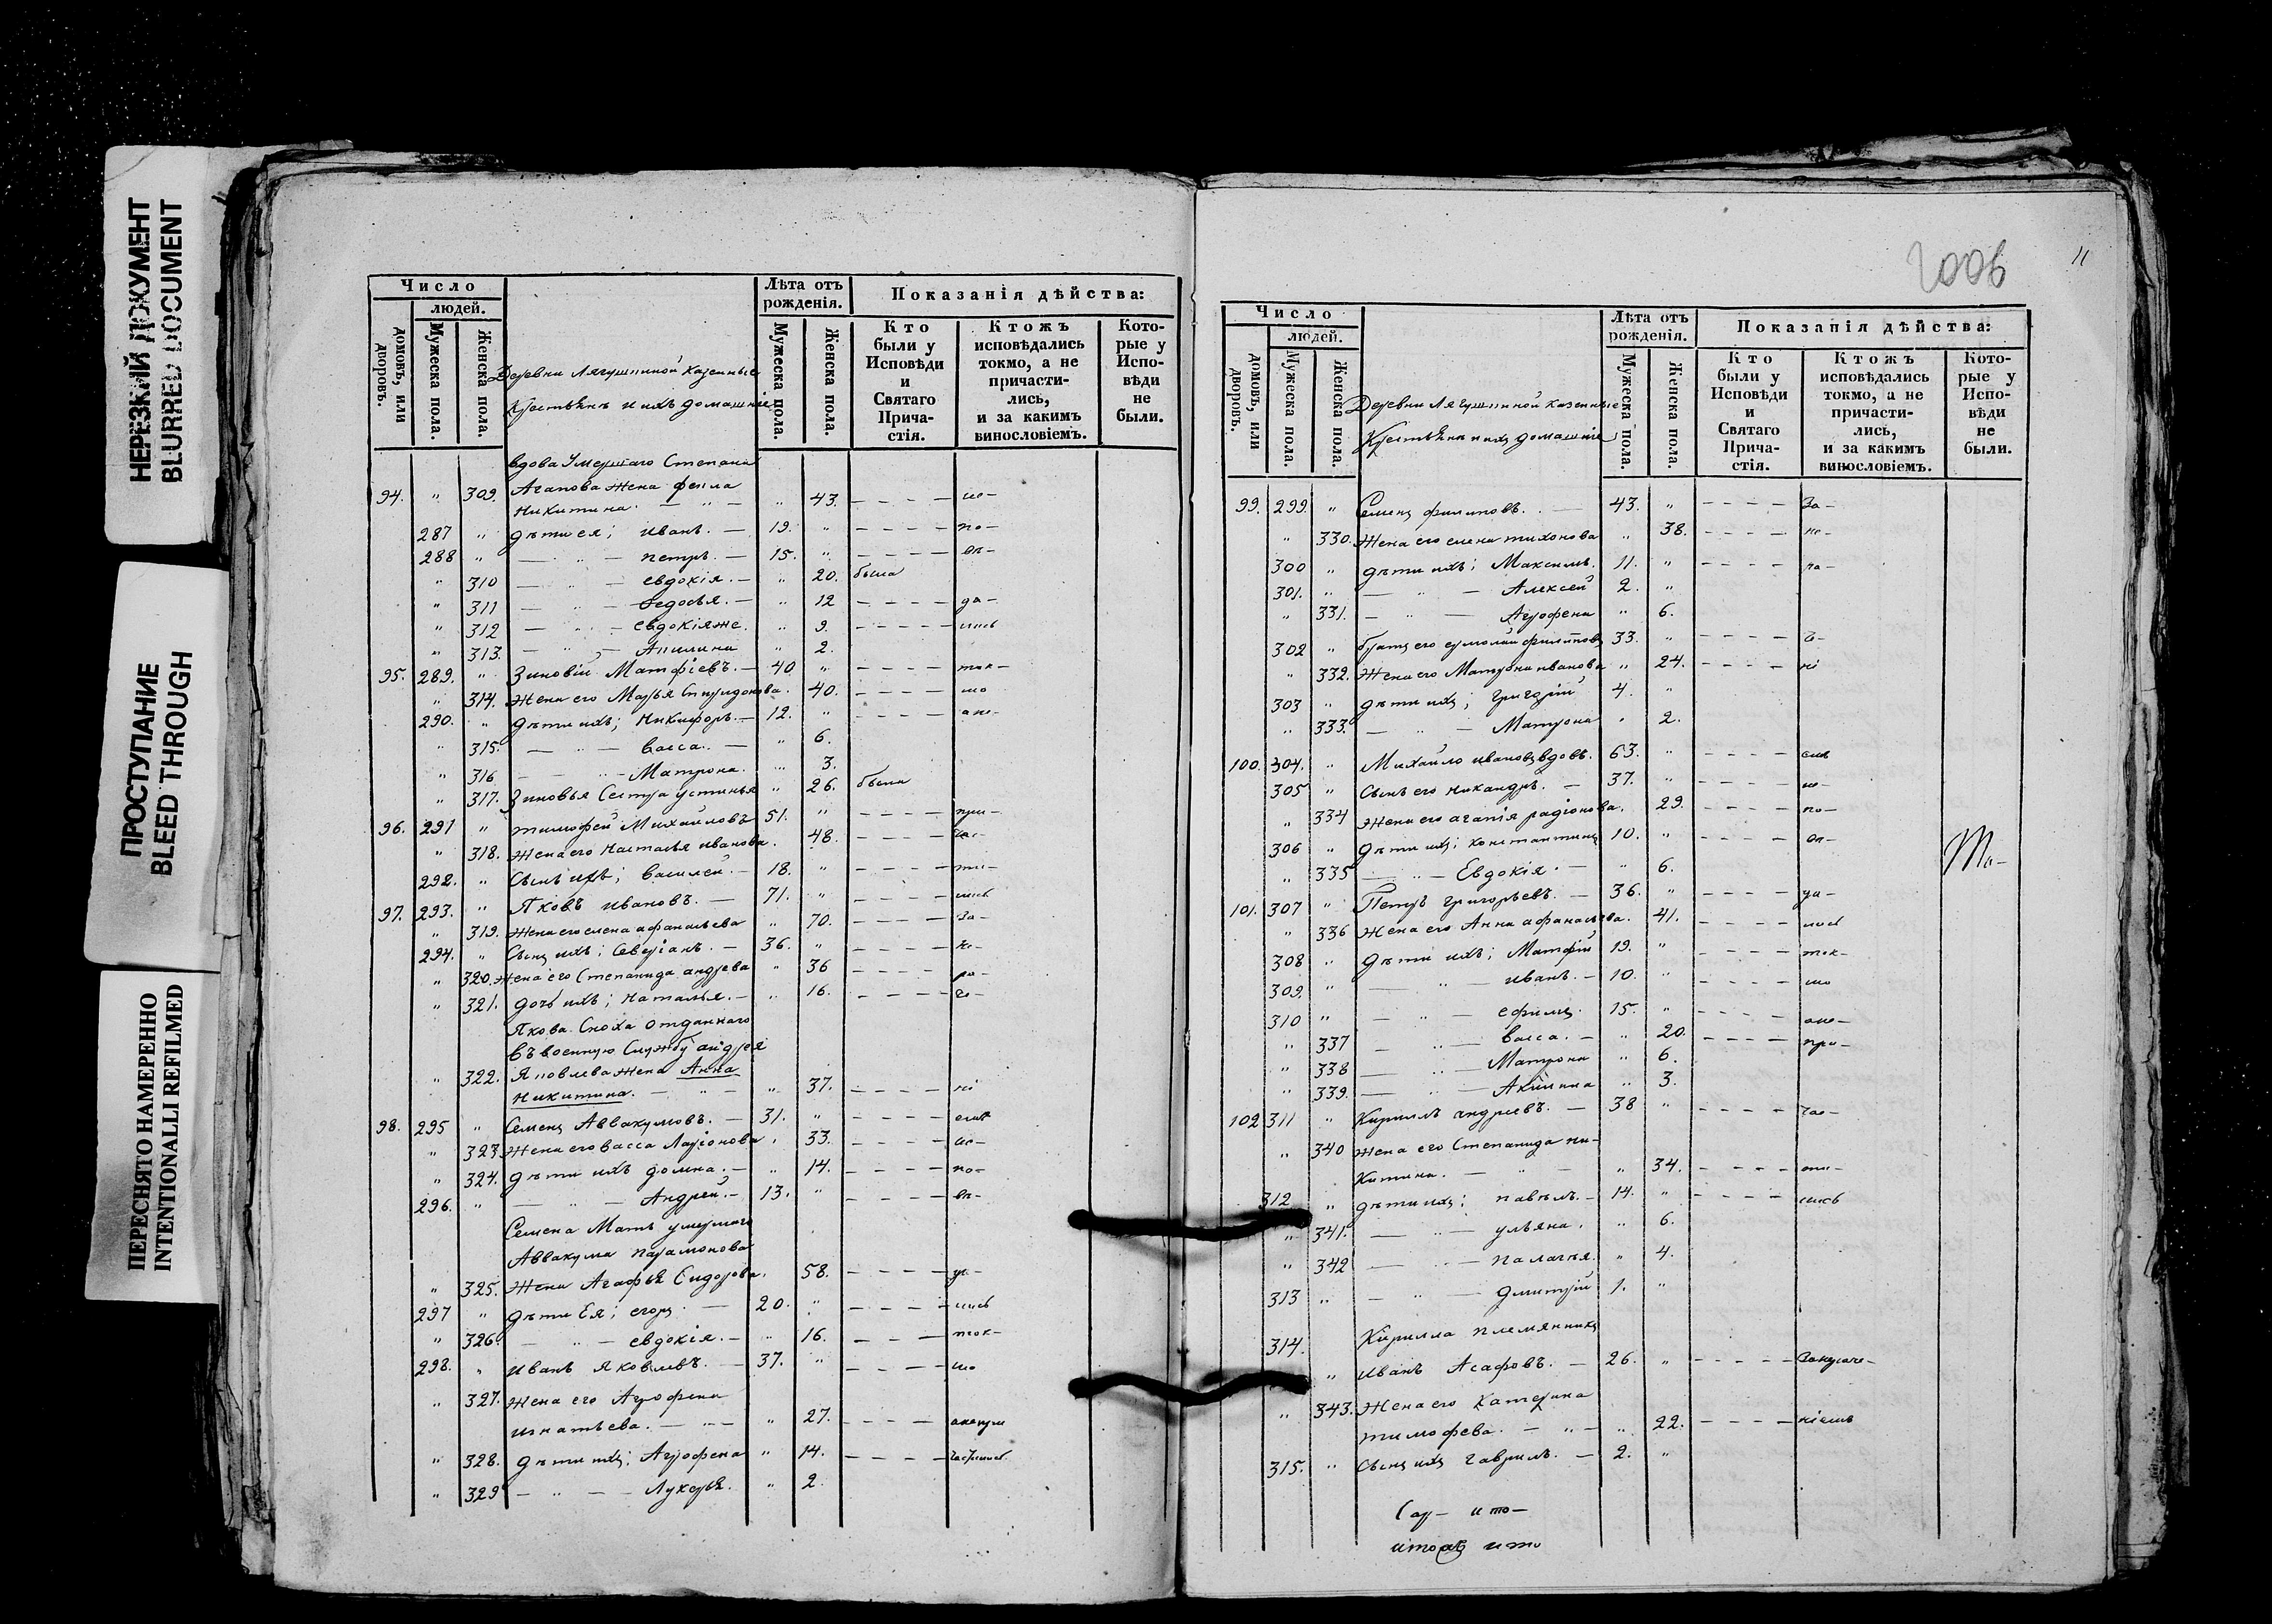 НЕРЕЗКИЙ ДОКУМЕНТ
BLURRED DOCUMENT
ПРОСТУПАНИЕ
BLEED THROUGH
ПЕРЕСНЯТО НАМЕРЕННО
INTENTIONALLI REFILMED
Число
людей.
домовъ, или дворовъ.
Мужеска пола.
Женска пола.
Деревни Лягушиной казенные
Крестьяне и ихъ домашніе
Лѣта отъ рожденія.
Мужеска пола.
Женска пола.
Показанія дѣйства:
Кто были у Исповѣди и Святаго Прича-стія.
Ктожъ исповѣдались токмо, а не причасти-лись, и за какимъ винословіемъ.
Кото-рые у Испо-вѣди не были.
вдова Умершаго Степана
94. " 309. Агапова жена
Никитина. — " — " 43. – – – –
287 " дѣти ея; иванъ. — 19. " – – – – по–
288 " — " — петръ. — 15. " – – – –
" 310 — " — евдокія. — " 20. была
" 311 — " — Ѳедосья. — " 12 – – – – да–
" 312 — " — евдокіяже. " 9. – – – – лись
" 313. — " — Акилина " 2.
95. 289. " Зиновій Матфіевъ. — 40 " – – – – ток–
" 314. Жена его Марья Спиридонова. 40. – – – – мо
290. " дѣти ихъ; Никифоръ. — 12. " – – – – ане–
" 315. — " — васса. — " 6.
" 316 — " — Матрона. " 3.
" 317. Зиновья Сестра устинья " 26. была
96. 291 " тимофей Михайловъ 51. " – – – – при–
" 318. Жена его Настасья иванова. 48. – – – – час–
292. " Сынъ ихъ; василей. — 18. " – – – – ти–
97. 293. " Яковъ ивановъ. — 71. " – – – – лись
" 319. Жена его елена афанасьева " 70. – – – – за–
294. " Сынъ ихъ; Северіанъ. — 36. " – – – –
" 320. Жена его Степанида андреева " 36 – – – –
" 321. дочь ихъ; Наталья. — " 16. – – – –
Якова Сноха отданнаго
въ военную Службу андрея
" 322. Яковлева жена Анна
Никитина. — " — " 37. – – – – ні
98. 295 " Семенъ Аввакумовъ. — 31. " – – – – емъ
" 323. Жена его васса Ларіонова " 33. – – – – ис–
" 324. дѣти ихъ домна. — " 14. – – – – по–
296. " — " — Андрей. — 13. " – – – –
Семена Мать умершаго
Аввакума парамонова
" 325. Жена Агафья Сидорова. 58. – – – –
297 " дѣти Ея; егоръ. — 20. " – – – – лись
" 326. — " — евдокія. — " 16. – – – ток–
298. " иванъ Яковлевъ. — 37. " – – – – мо
" 327. Жена его Агрофена
игнатьева. — " — " 27. – – – –
" 328. дѣти ихъ; Агрофена " 14. – – – –
" 329 — " — Лукерья. " 2.
2006
11
Число
людей.
домовъ, или дворовъ.
Мужеска пола.
Женска пола.
Деревни Лягушиной казенные
Крестьяне и ихъ домашніе
Лѣта отъ рожденія.
Мужеска пола.
Женска пола.
Показанія дѣйства:
Кто были у Исповѣди и Святаго Прича-стія.
Ктожъ исповѣдались токмо, а не причасти-лись, и за какимъ винословіемъ.
Кото-рые у Испо-вѣди не были.
99. 299. " Семенъ филиповъ. — 43. " – – – – За–
" 330. Жена его елена тихонова " 38. – – – –
300 " дѣти ихъ; Максимъ. 11. " – – – –
301. " — " — Алексей 2. "
" 331. — " — Агрофена " 6.
302 " братъ его ермолай филиповъ 33. " – – – –
" 332. Жена его Матрона иванова " 24. – – – – ні
303 " дѣти ихъ; григорій 4. "
" 333. — " — Матрона " 2.
100. 304. " Михайло ивановъ вдовъ. 63. " – – – – емъ
305 " Сынъ его никандръ. — 37. " – – – – ис–
" 334 Жена его агапія радіонова. 29. – – – – по–
306 " дѣти ихъ; константинъ 10. " – – – –
" 335 — " — Евдокія. — " 6.
101. 307 " Петръ григорьевъ. — 36. " – – – – да–
" 336 Жена его Анна афанасьева. 41. – – – – лись
308 " дѣти ихъ; Матфій 19. " – – – – ток–
309. " — " — иванъ. — 10. " – – – – мо
310 " — " — ефимъ. 15. " – – – – ане–
" 337 — " — васса. — " 20. – – – – при–
" 338 — " — Матрона " 6.
" 339. — " — Акилина " 3.
102 311 " Кирилъ андреевъ. — 38 " – – – – час–
" 340 жена его Степанида ни–
китина. — " — " 34. – – – – ти–
312 " дѣти ихъ; павелъ. — 14. " – – – – лись
" 341. — " — ульяна. " 6.
" 342 — " — палагья. " 4.
313 " — " — дмитрій 1. "
314. Кирилла племянникъ
" иванъ Асафовъ. — 26. " – – – –
" 343. Жена его Катерина
тимофева. — " — " 22. – – – – ніемъ
315. " Сынъ ихъ гаврилъ. — 2. "